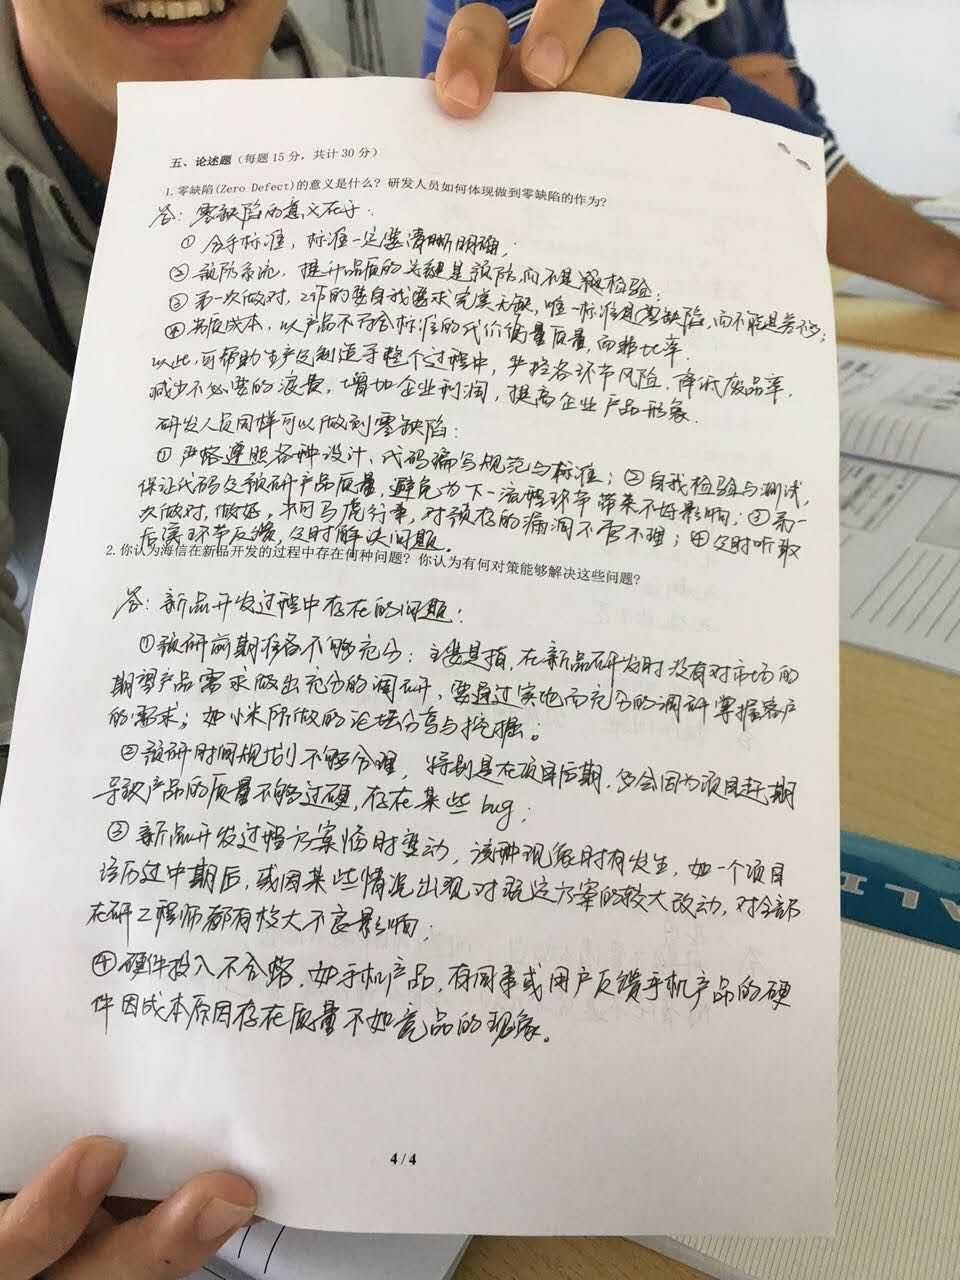 五、论述题（每题 15 分，共计 30 分）
1. 零缺陷(Zero Defect)的意义是什么？研发人员如何体现做到零缺陷的作为？
答：零缺陷的意义在于：
① 合乎标准，标准一定要清晰明确；
② 预防系统，提升品质的关键是预防而不是检验；
③ 第一次做对，工作的要自我需求完美无缺，唯一标准是零缺陷，而不能是差不多；
④ 劣质成本，以产品不符合标准的代价衡量质量，而非比率.
以此，可帮助生产及制造等整个过程中，严控各环节风险，降低废品率，
减少不必要的浪费，增加企业利润，提高企业产品形象.
研发人员同样可以做到零缺陷：
① 严格遵照各种设计、代码编写规范与标准；② 自我检验与测试，
保证代码及预研产品质量，避免为下一流程环节带来不好影响；③ 第一
次做对，做好，不可马虎行事，对预存的漏洞不管不理；④ 及时听取
后续环节反馈，及时解决问题。
2. 你认为海信在新品开发的过程中存在何种问题？你认为有何对策能够解决这些问题？
答：新品开发过程中存在的问题：
① 预研前期准备不够充分：主要是指，在新品研发时没有对市场的
期望产品需求做出充分的调研，要通过实地而充分的调研掌握客户
的需求；如小米所做的论坛分享与挖掘。
② 预研时间规划不够合理，特别是在项目后期，多会因为项目赶期
导致产品的质量不够过硬，存在某些 bug；
③ 新品开发过程方案临时变动，该种现象时有发生，如一个项目
经历过中期后，或因某些情况出现对既定方案的较大改动，对全部
在研工程师都有较大不良影响；
④ 硬件投入不合格，如手机产品，有同事或用户反馈手机产品的硬
件因成本原因存在质量不如竞品的现象。
4 / 4